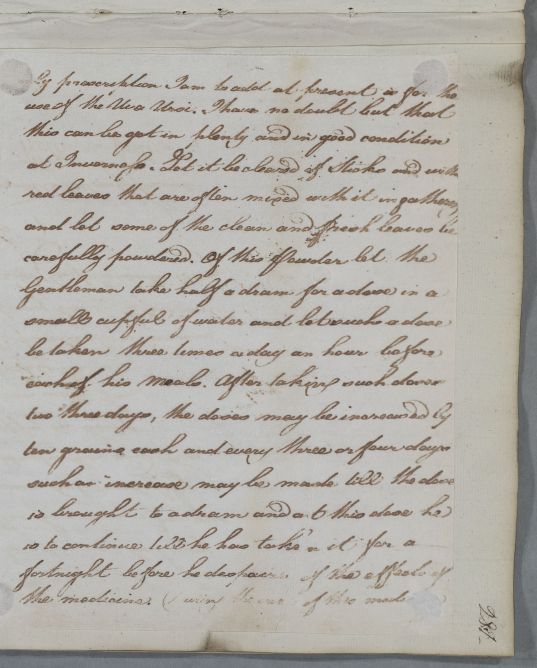 prescription I am to add at present is for the
use of the Uva Ursi. I have no doubt but that
this can be got in plenty and in good condition
at Inverness. Let it be cleared of sticks and
red leaves that are often mixed with it in
and let some of the clean and fresh leaves be
carefully powdered. Of this Powder let the
Gentleman take half a dram for a dose in a
small cupful of water and let such a dose
be taken three times a day an hour before
each of his meals. After taking such doses
two three days, the doses may be increased by
ten grains each and every three or four days
such an increase may be made till the dose
is brought to a dram and at this dose he
is to continue till he has take'n it for a
fortnight before he despairs of the effects of
the medicine. the use of this
281